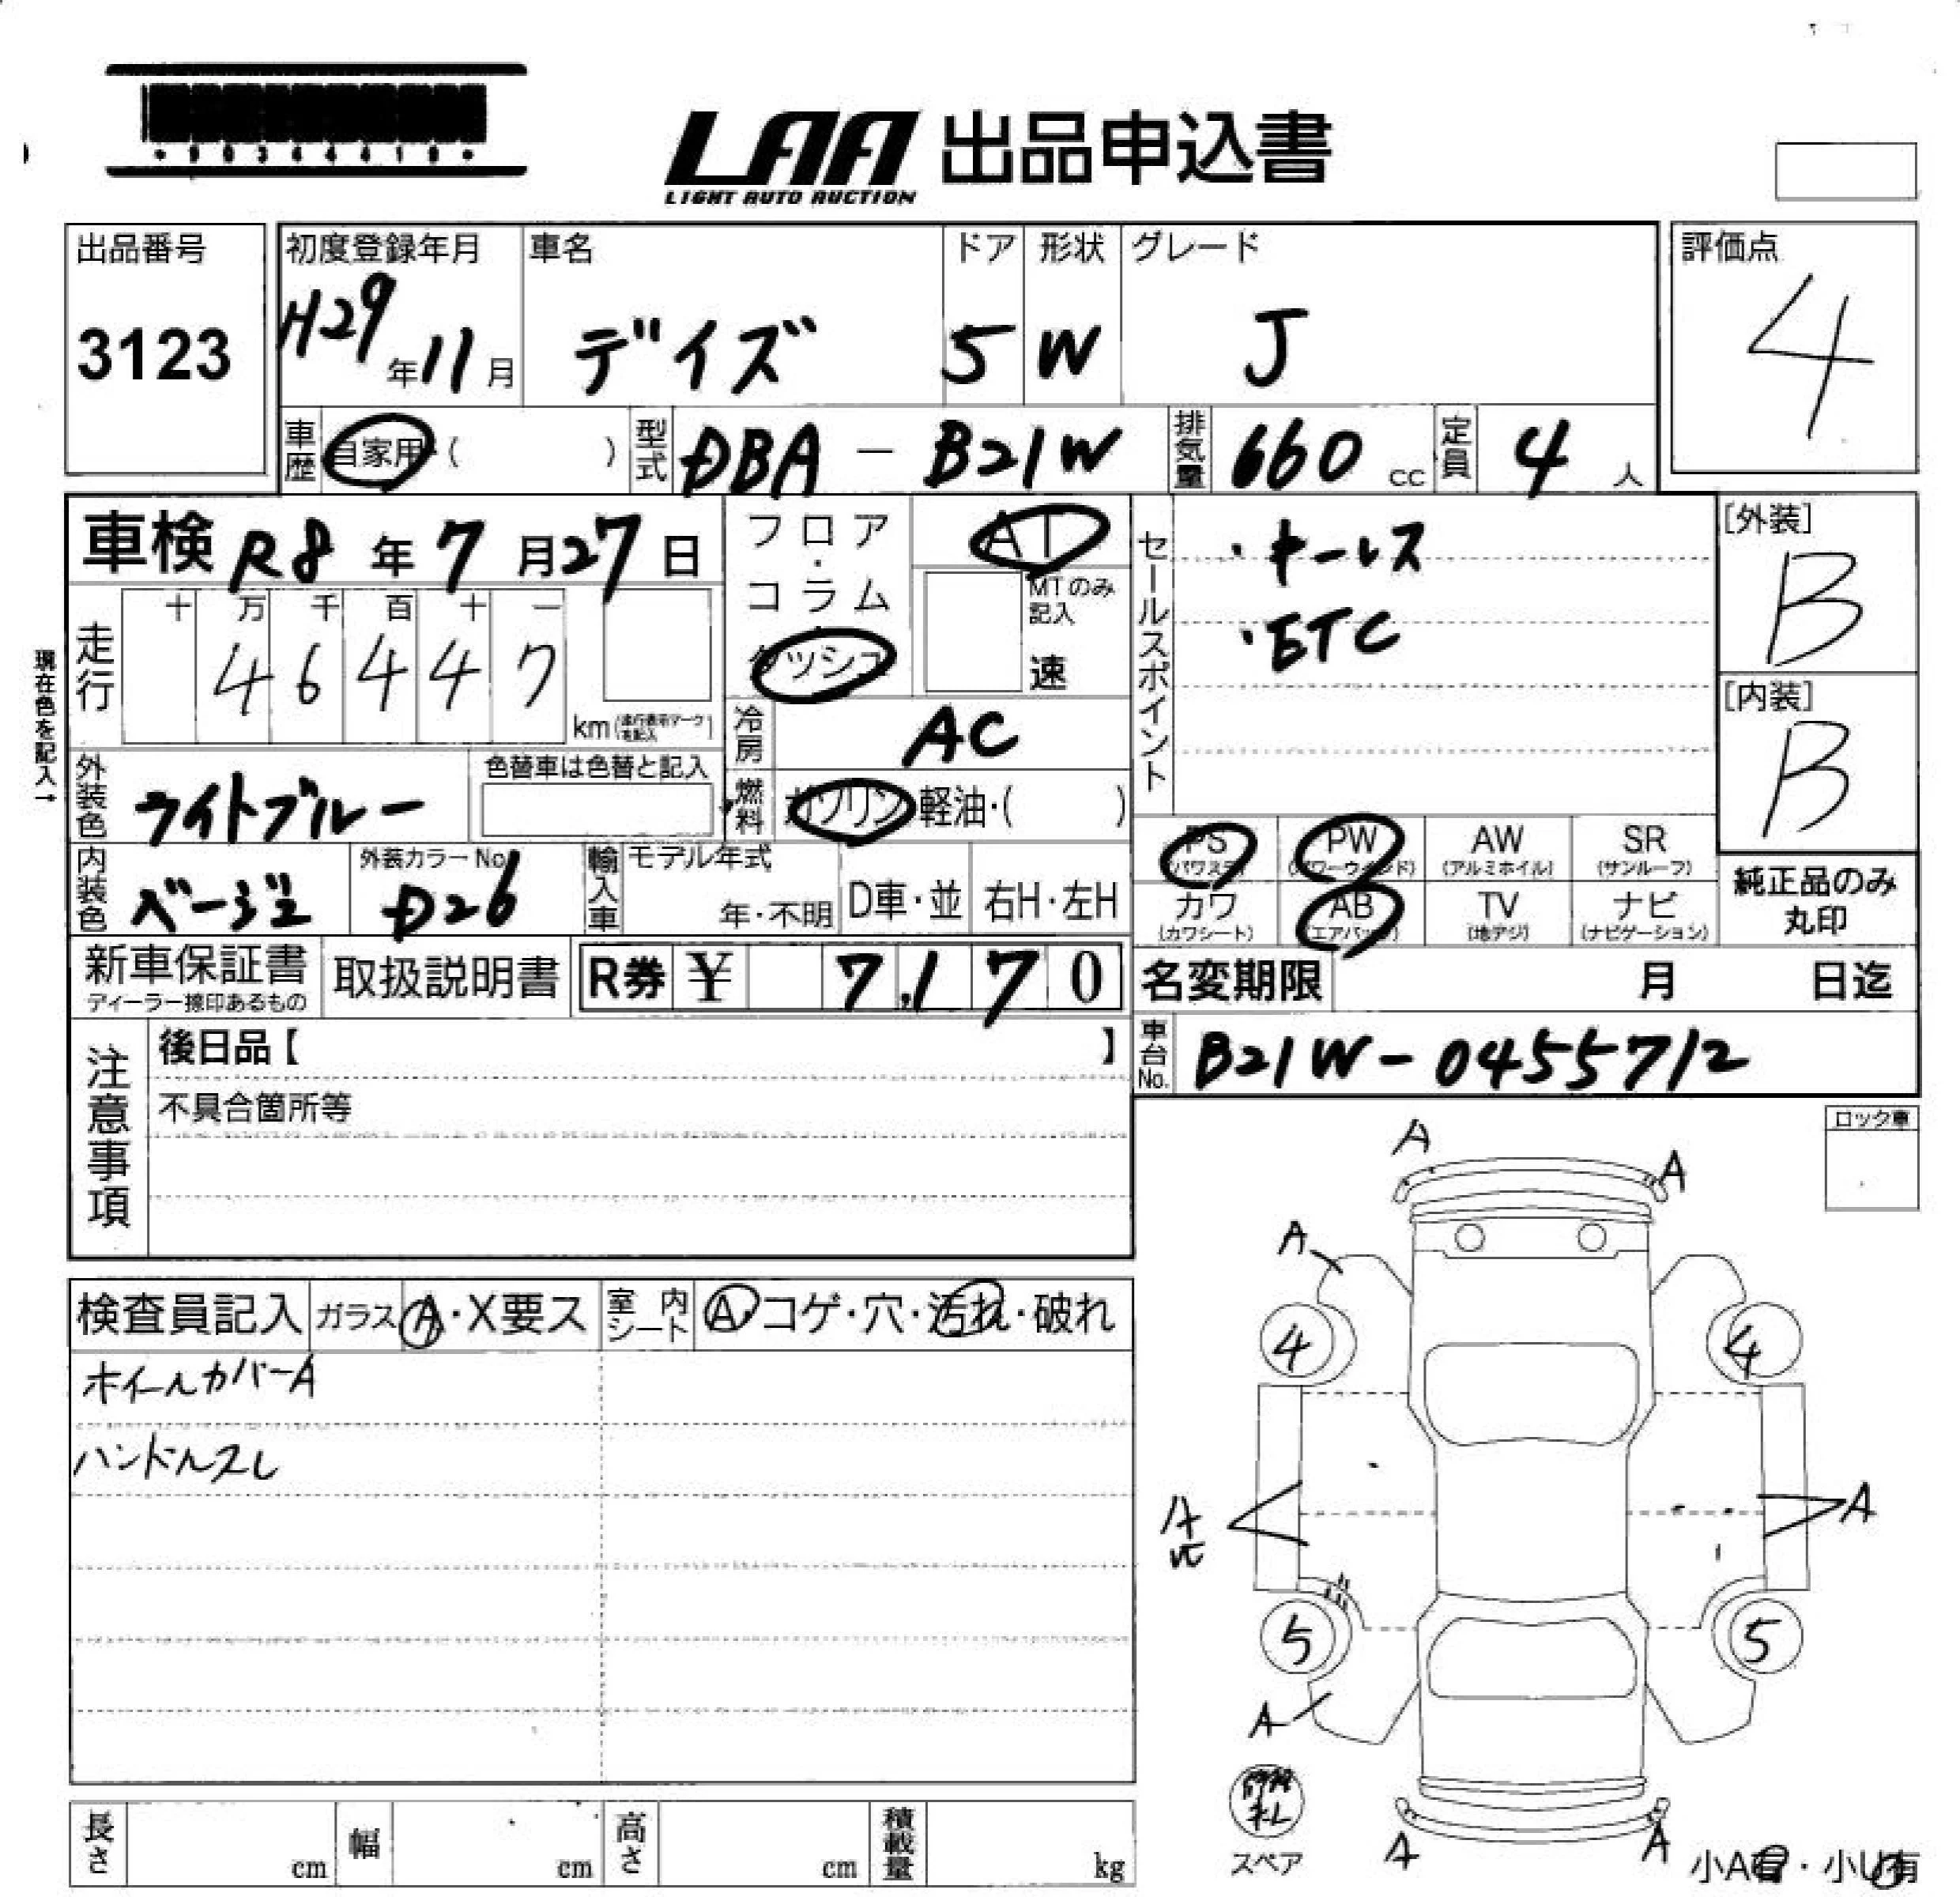 ・90344410・
LAA 出品申込書
LIGHT AUTO AUCTION
出品番号
3123
初度登録年月
H29年11月
車名
デイズ
ドア
5
形状
W
グレード
J
評価点
4
車歴 自家用・( )
型式 DBA-B21W
排気量 660 cc
定員 4 人
車検 R8年7月27日
フロア・コラム・ダッシュ
AT
MTのみ記入
速
セールスポイント
・キーレス
・ETC
[外装]
B
[内装]
B
走行
十 万 千 百 十 一
4 6 4 4 7
km(走行表示マークを記入)
現在色を記入→
冷房 AC
外装色 ライトブルー
色替車は色替と記入
燃料 ガソリン・軽油・( )
PS (パワステ)
PW (パワーウインド)
AW (アルミホイル)
SR (サンルーフ)
カワ (カワシート)
AB (エアバッグ)
TV (地デジ)
ナビ (ナビゲーション)
純正品のみ丸印
内装色 ベージュ
外装カラーNo. D26
輸入車
モデル年式
年・不明
D車・並
右H・左H
新車保証書
ディーラー捺印あるもの
取扱説明書
R券 ¥ 7,170
名変期限 月 日迄
注意事項
後日品【 】
不具合箇所等
車台No. B21W-0455712
ロック車
検査員記入 ガラス A・X要ス
室内シート A・コゲ・穴・汚れ・破れ
ホイールカバーA
ハンドルスレ
A
A
A
4
4
A
A
5
5
A
スペア
A
A
小A有・小U有
長さ cm
幅 cm
高さ cm
積載量 kg